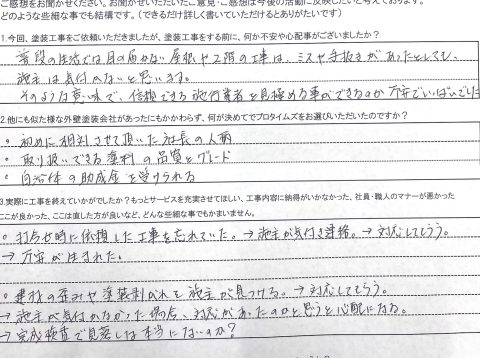 ご感想をお聞かせください。お聞かせいただいたご意見・ご感想は今後の活動に反映したいと考えております。
どのような些細な事でも結構です。(できるだけ詳しく書いていただけるとありがたいです)
1.今回、塗装工事をご依頼いただきましたが、塗装工事をする前に、何か不安や心配事がございましたか?
普段の生活では目の届かない屋根や2階の工事は、ミスや手抜きがあったとしても、
施主は気付かないと思います。
そのような意味で、信頼できる施行業者を見極める事ができるか不安でいっぱいでした
2.他にも似た様な外壁塗装会社があったにもかかわらず、何が決めてでプロタイムズをお選びいただいたのですか?
・初めに相談させて頂いた社長の人柄
・取り扱いできる塗料の品質とグレード
・自治体の助成金を受けられる
3.実際に工事を終えていかがでしたか?もっとサービスを充実させてほしい、工事内容に納得がいかなかった、社員・職人のマナーが悪かった
ここが良かった、ここは直した方が良いなど、どんな些細な事でもかまいません。
・打合せ時に依頼した工事を忘れていた。→施主が気付き連絡。→対応してもらう。
→不安が生まれた。
・建物の歪みや塗装剥がれを施主が見つける。→対応してもらう。
→施主が気付かなかった場合、対応があったのかと思うと心配になる。
→完成検査で見落しは本当にないのか?